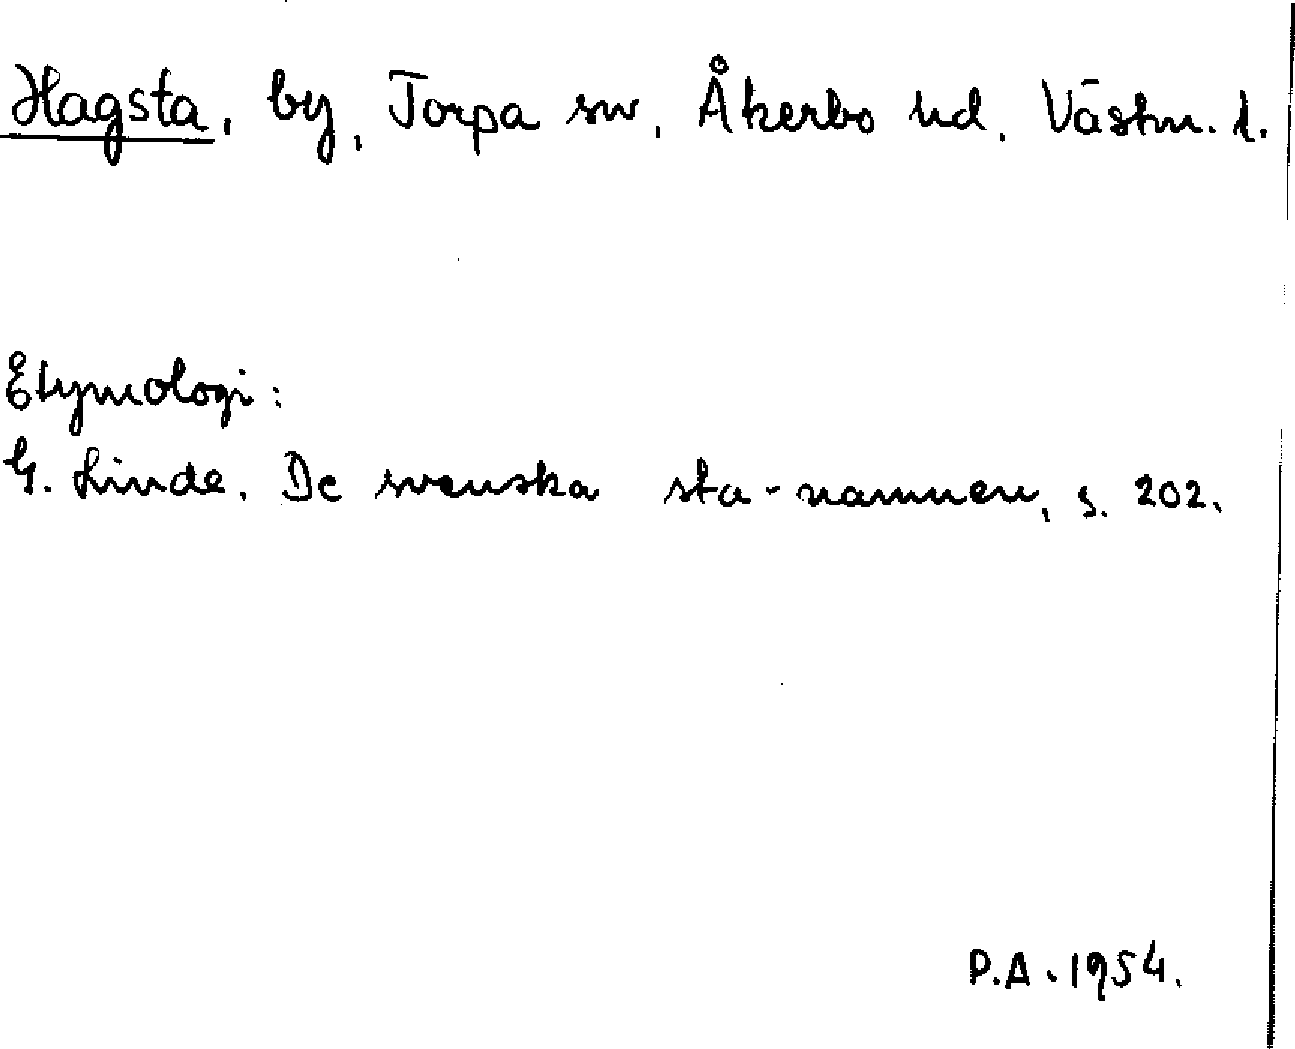 Hagsta, by, Torpa sn, Åkerbo hd, Västm. l.
Etymologi:
G. Linde, De svenska sta-namnen, s. 202.
P.A. 1954.